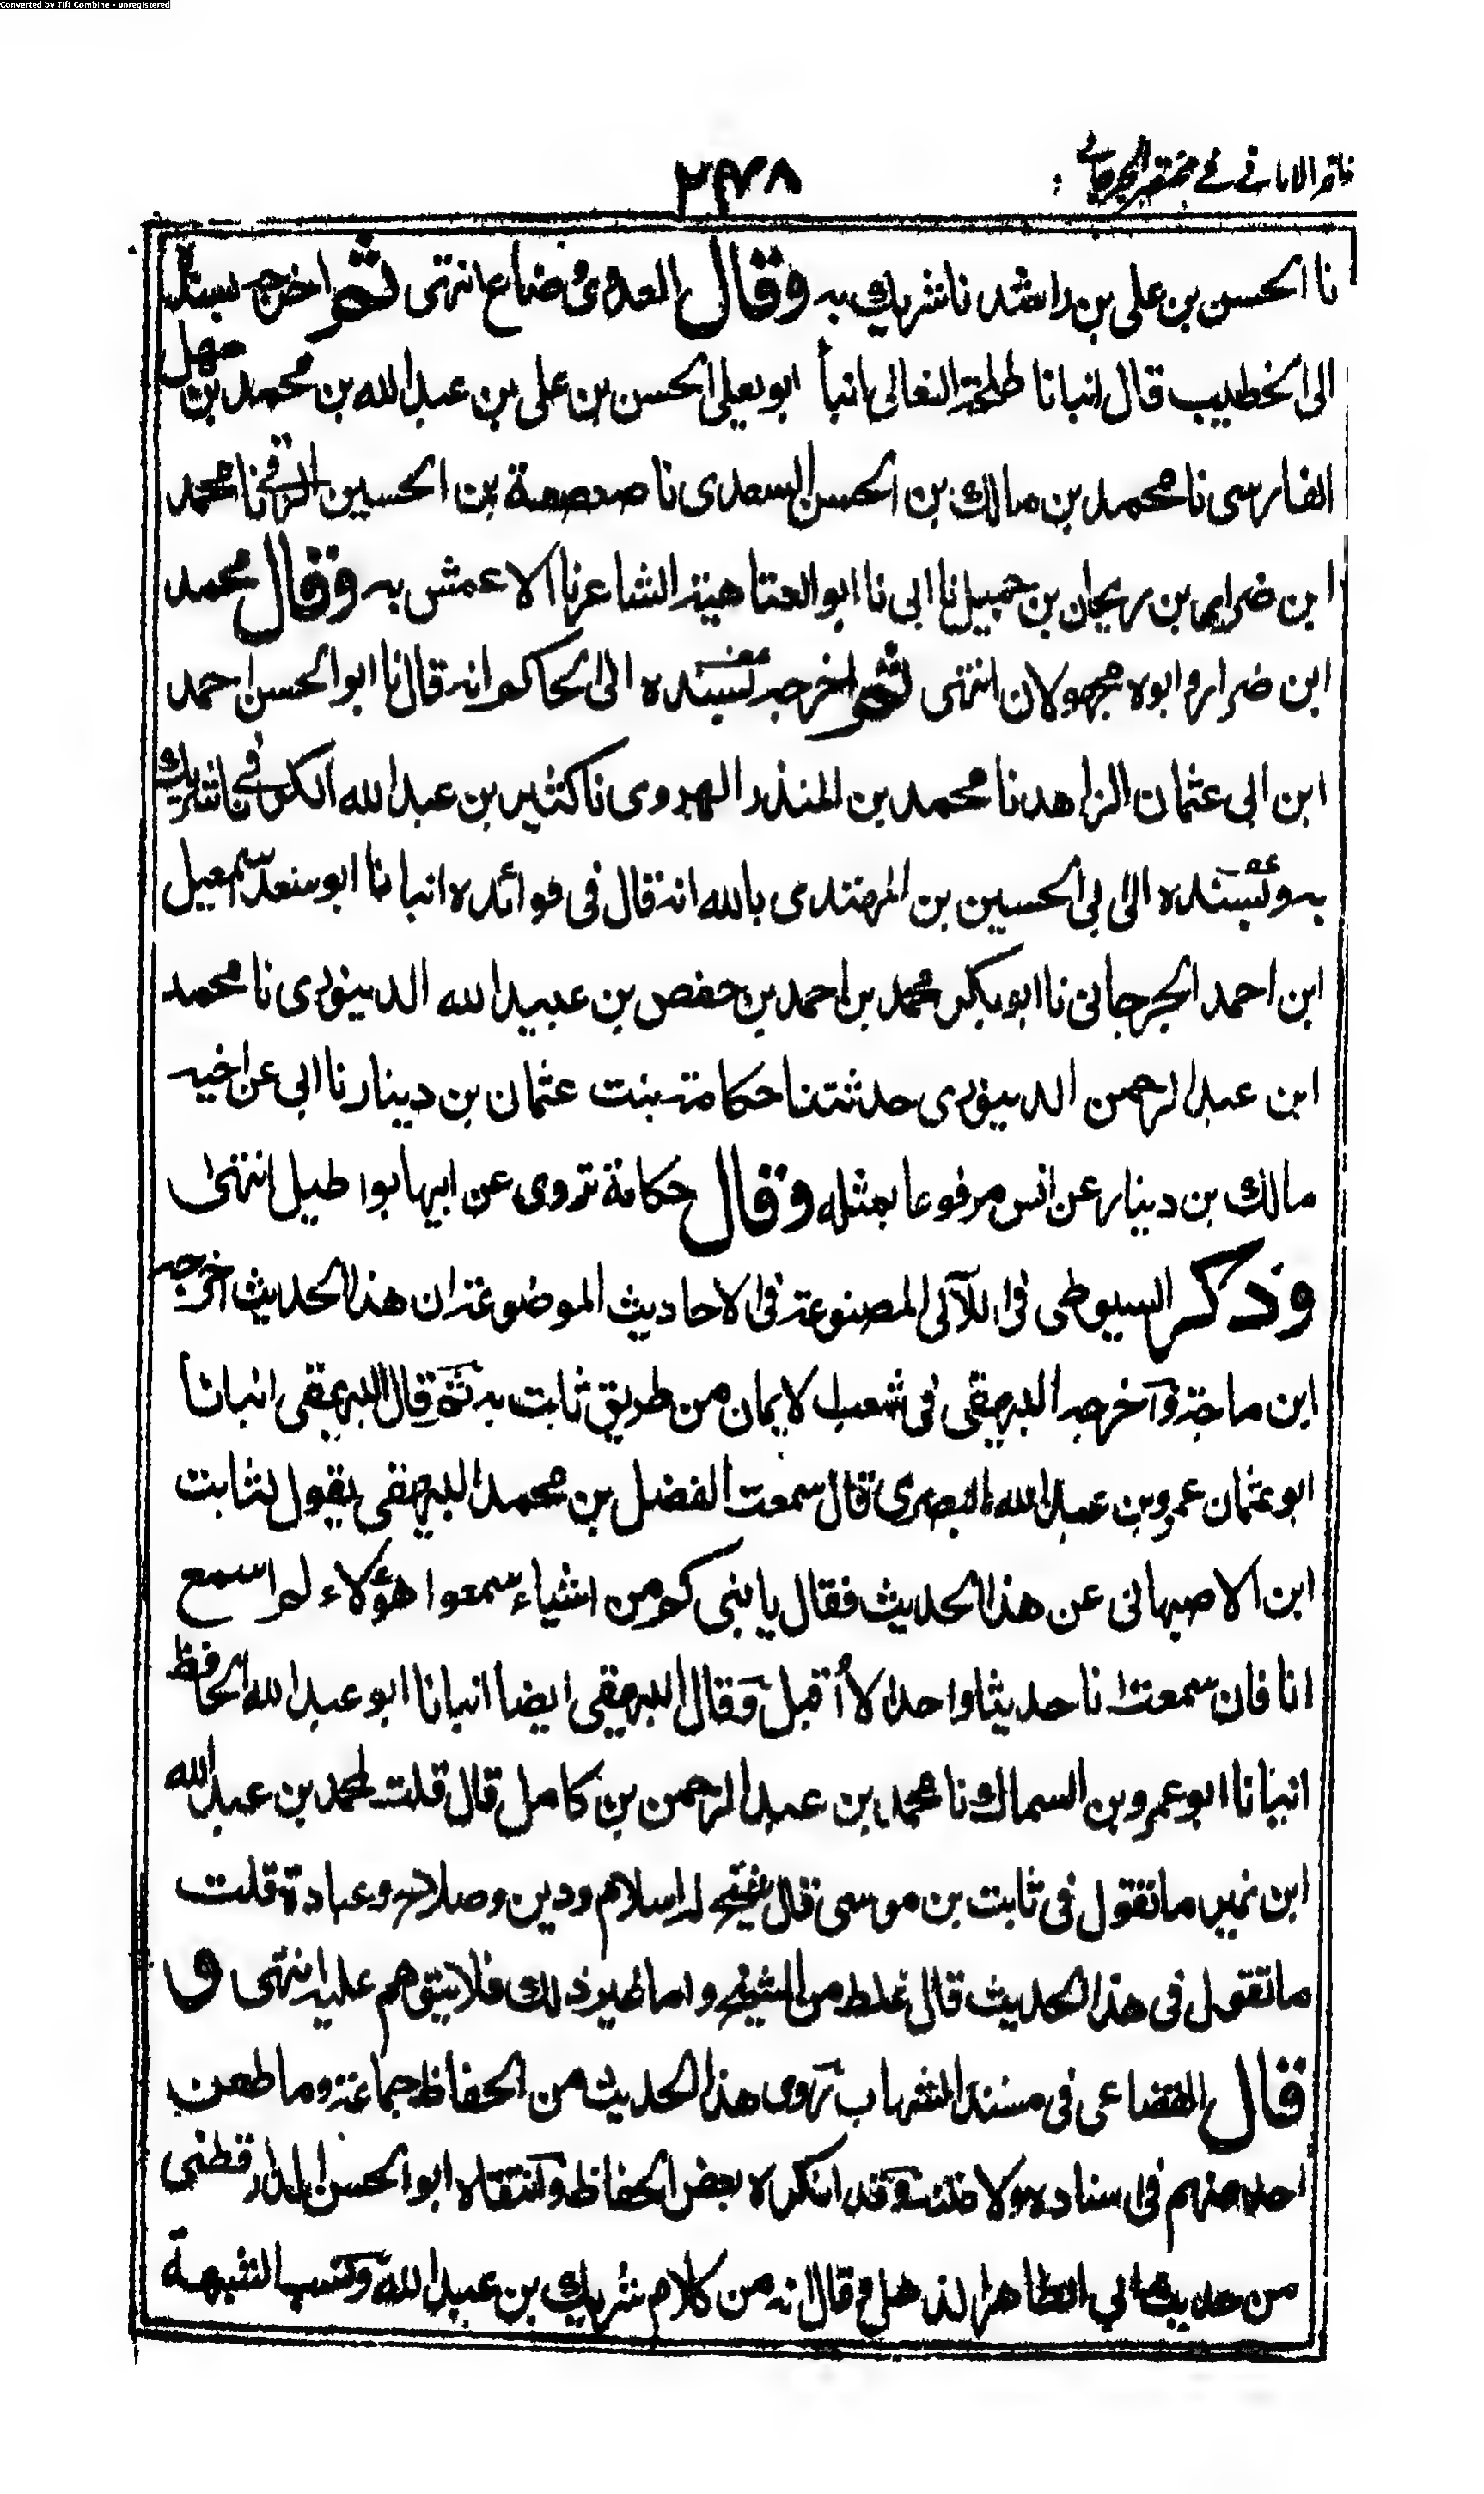 Converted by Tiff Combine - unregistered
ظفر الامانی فی مختصر الجرجانی
٢٣٨
نا الحسن بن علی بن راشد نا شریك به وقال العدوی وضاع انتهی ثم اخرجه بسنده
الی الخطیب قال انبانا طلحة النعالی انبأ ابو یعلی الحسن بن علی بن عبد الله بن محمد بن سهل
الفارسی نا محمد بن مالك بن الحسن السعدی نا صعصعة بن الحسین الرقی نا محمد
ابن ضرار بن ریحان بن جمیل نا ابی نا ابو العتاهیة الشاعر نا الاعمش به وقال محمد
ابن ضرار وابوه مجهولان انتهی ثم اخرجه بسنده الی الحاکم انه قال نا ابو الحسن احمد
ابن ابی عثمان الزاهد نا محمد بن المنذر الهروی نا کثیر بن عبد الله الکوفی نا شریك
به وبسنده الی ابی الحسین بن المهتدی بالله انه قال فی فوائده انبانا ابو سعد اسمعیل
ابن احمد الجرجانی نا ابو بکر محمد بن احمد بن حفص بن عبید الله الدینوری نا محمد
ابن عبد الرحمن الدینوری حدثتنا حکامة بنت عثمان بن دینار نا ابی عن اخیه
مالك بن دینار عن انس مرفوعا بمثله وقال حکامة تروی عن ابیها بواطیل انتهی
وذکر السیوطی فی اللآلی المصنوعة فی الاحادیث الموضوعة ان هذا الحدیث اخرجه
ابن ماجة وآخرجه البیهقی فی شعب الایمان من طریق ثابت به ثم قال البیهقی انبانا
ابو عثمان عمرو بن عبد الله البصری قال سمعت الفضل بن محمد البیهقی یقول لثابت
ابن الاصبهانی عن هذا الحدیث فقال یا بنی کم من اشیاء سمعوا هؤلاء لم اسمع
انا فان سمعت انا حدیثا واحدا لا أقبل وقال البیهقی ایضا انبانا ابو عبد الله الحافظ
انبانا ابو عمرو بن السماك نا محمد بن عبد الرحمن بن کامل قال قلت لمحمد بن عبد الله
ابن نمیر ما تقول فی ثابت بن موسی قال شیخ له اسلام ودین وصلاح وعبادة قلت
ما تقول فی هذا الحدیث قال غلط من الشیخ واما غیر ذلك فلا یتوهم علیه انتهی و
قال القضاعی فی مسند الشهاب روی هذا الحدیث من الحفاظ جماعة وما طعن
احد منهم فی اسناده ولا متنه وقد انکره بعض الحفاظ وانتقاه ابو الحسن الدارقطنی
من حدیث ابی الطاهر الذهلی وقال انه من کلام شریك بن عبد الله ونسب الشبهة